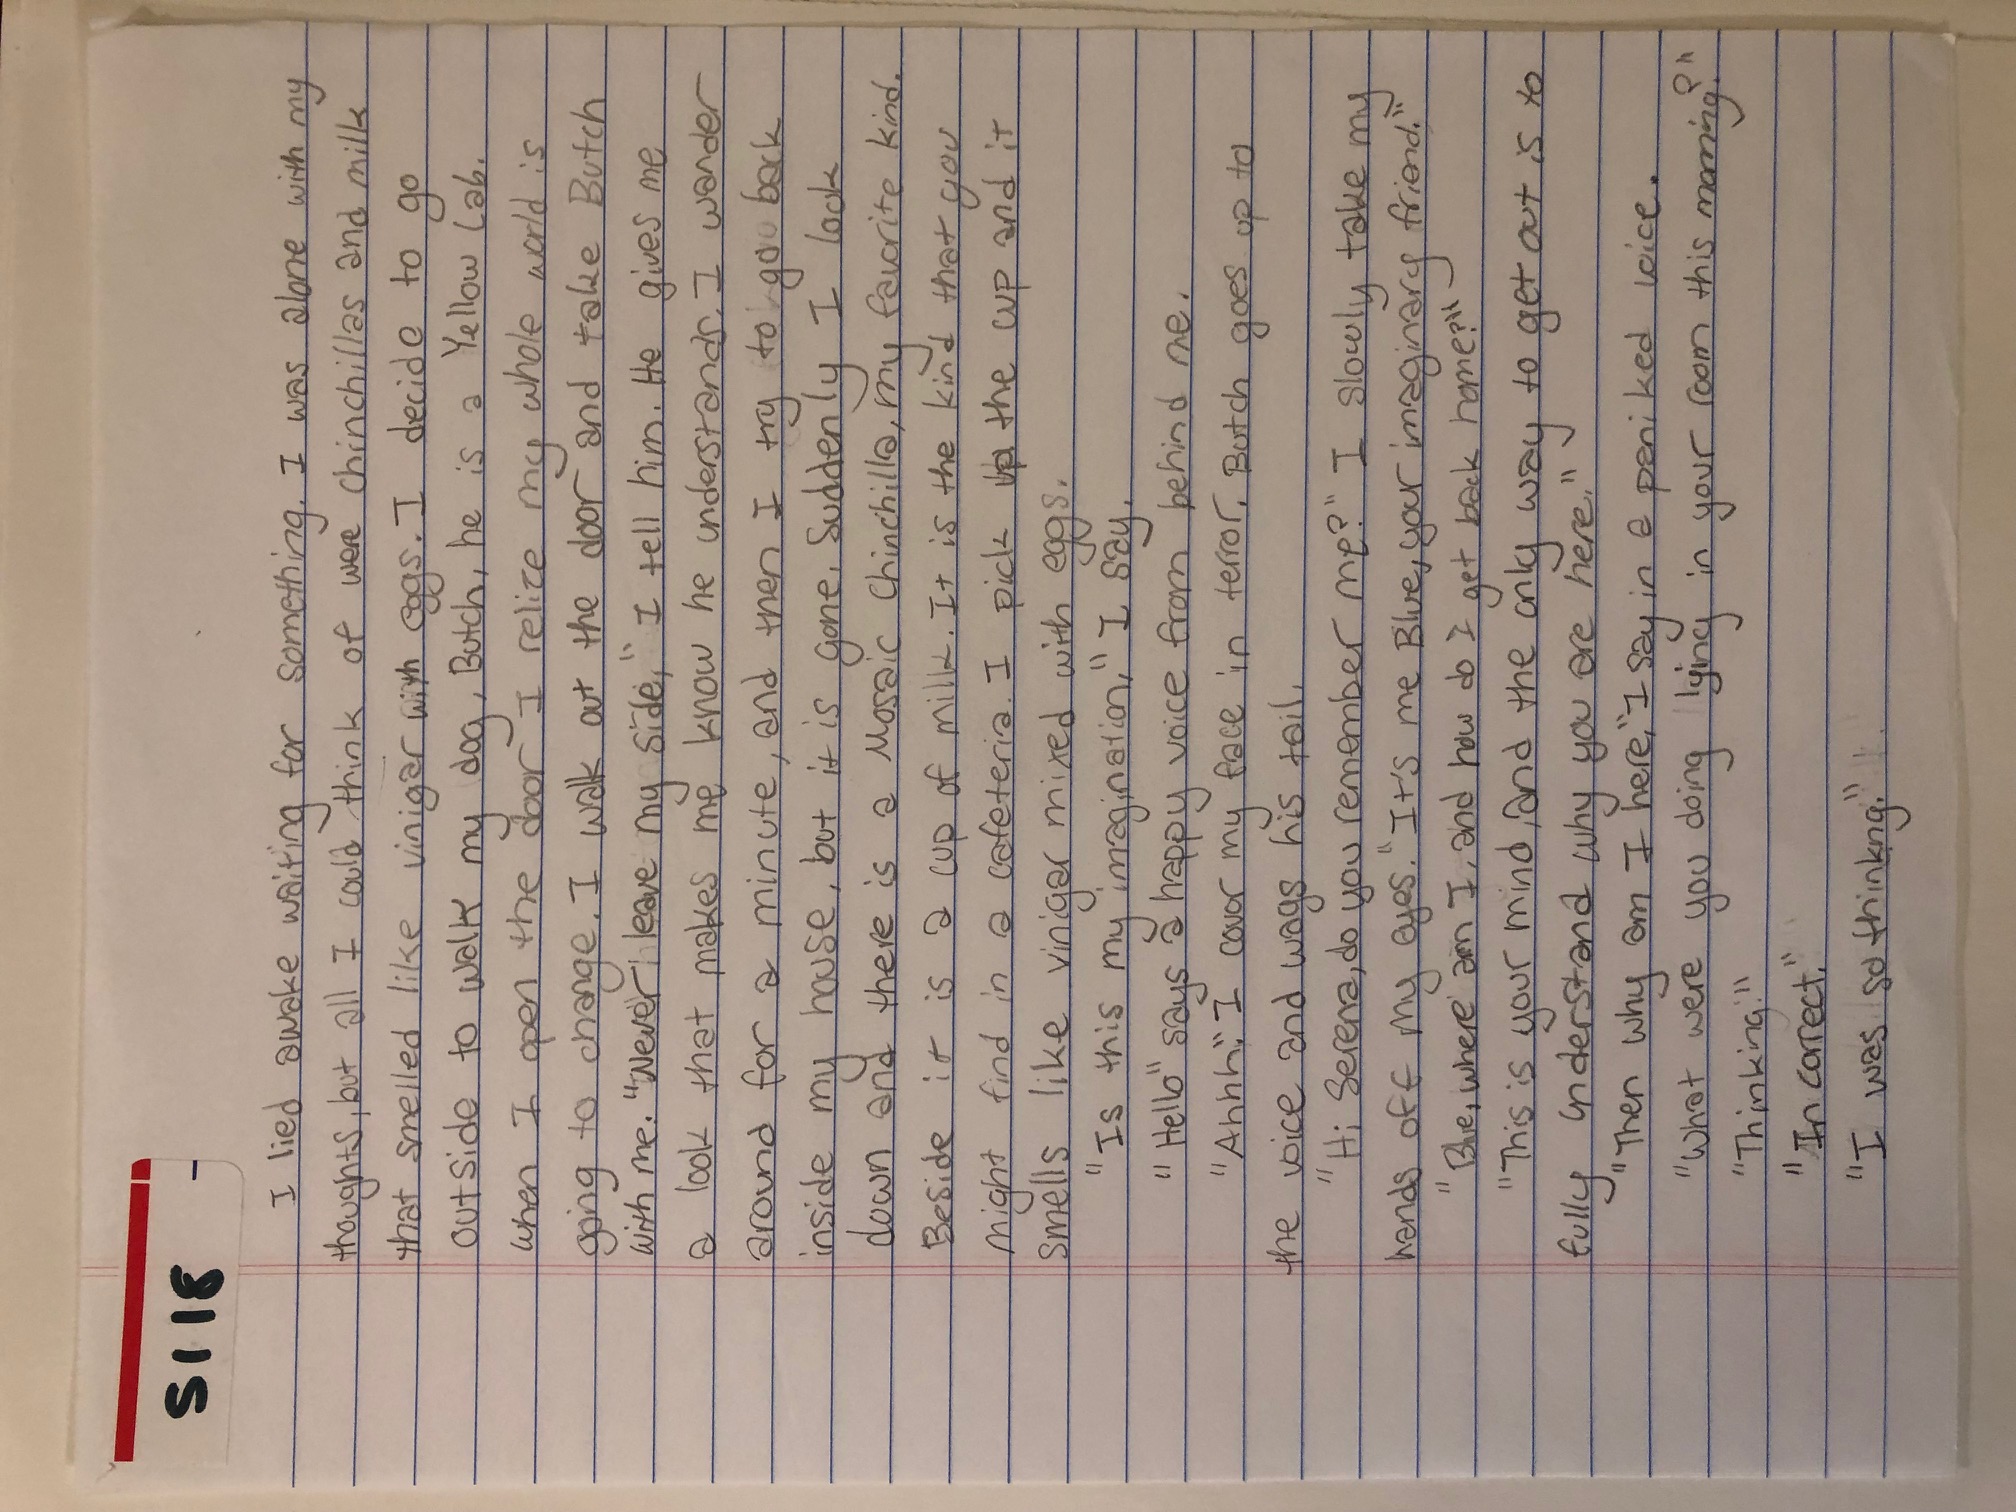 S118
I lied awake waiting for something. I was alone with my
thoughts, but all I could think of were chinchillas and milk
that smelled like vinigar with eggs. I decide to go
outside to walk my dog, Butch, he is a Yellow Lab.
When I open the door I relize my whole world is
going to change. I walk out the door and take Butch
with me. "Never leave my side," I tell him. He gives me
a look that makes me know he understands. I wander
around for a minute, and then I try to go back
inside my house, but it is gone. Suddenly I look
down and there is a Mosaic Chinchilla, my favorite kind.
Beside it is a cup of milk. It is the kind that you
might find in a cafeteria. I pick up the cup and it
smells like vinigar mixed with eggs.
"Is this my imagination," I say.
"Hello" says a happy voice from behind me.
"Ahhh." I covor my face in terror. Butch goes up to
the voice and wags his tail.
"Hi Serena, do you remember me?" I slowly take my
hands off my eyes. "It's me Blue, your imaginary friend."
"Blue, where am I, and how do I get back home?"
"This is your mind, and the only way to get out is to
fully understand why you are here."
"Then why am I here," I say in a paniked voice.
"What were you doing lying in your room this morning?"
"Thinking."
"In correct."
"I was so thinkng."